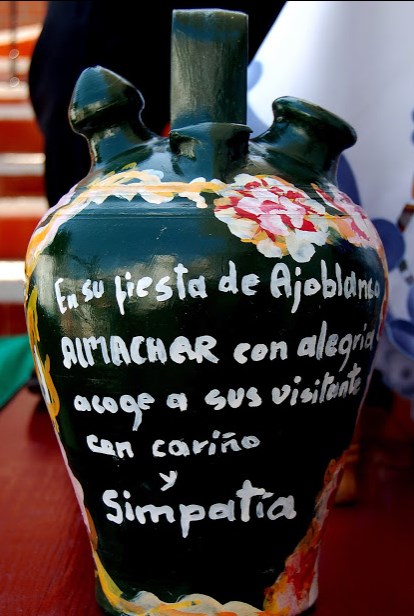 En su fiesta de Ajoblanco
ALMACHAR con alegria
acoge a sus visitante
con cariño
y
Simpatía